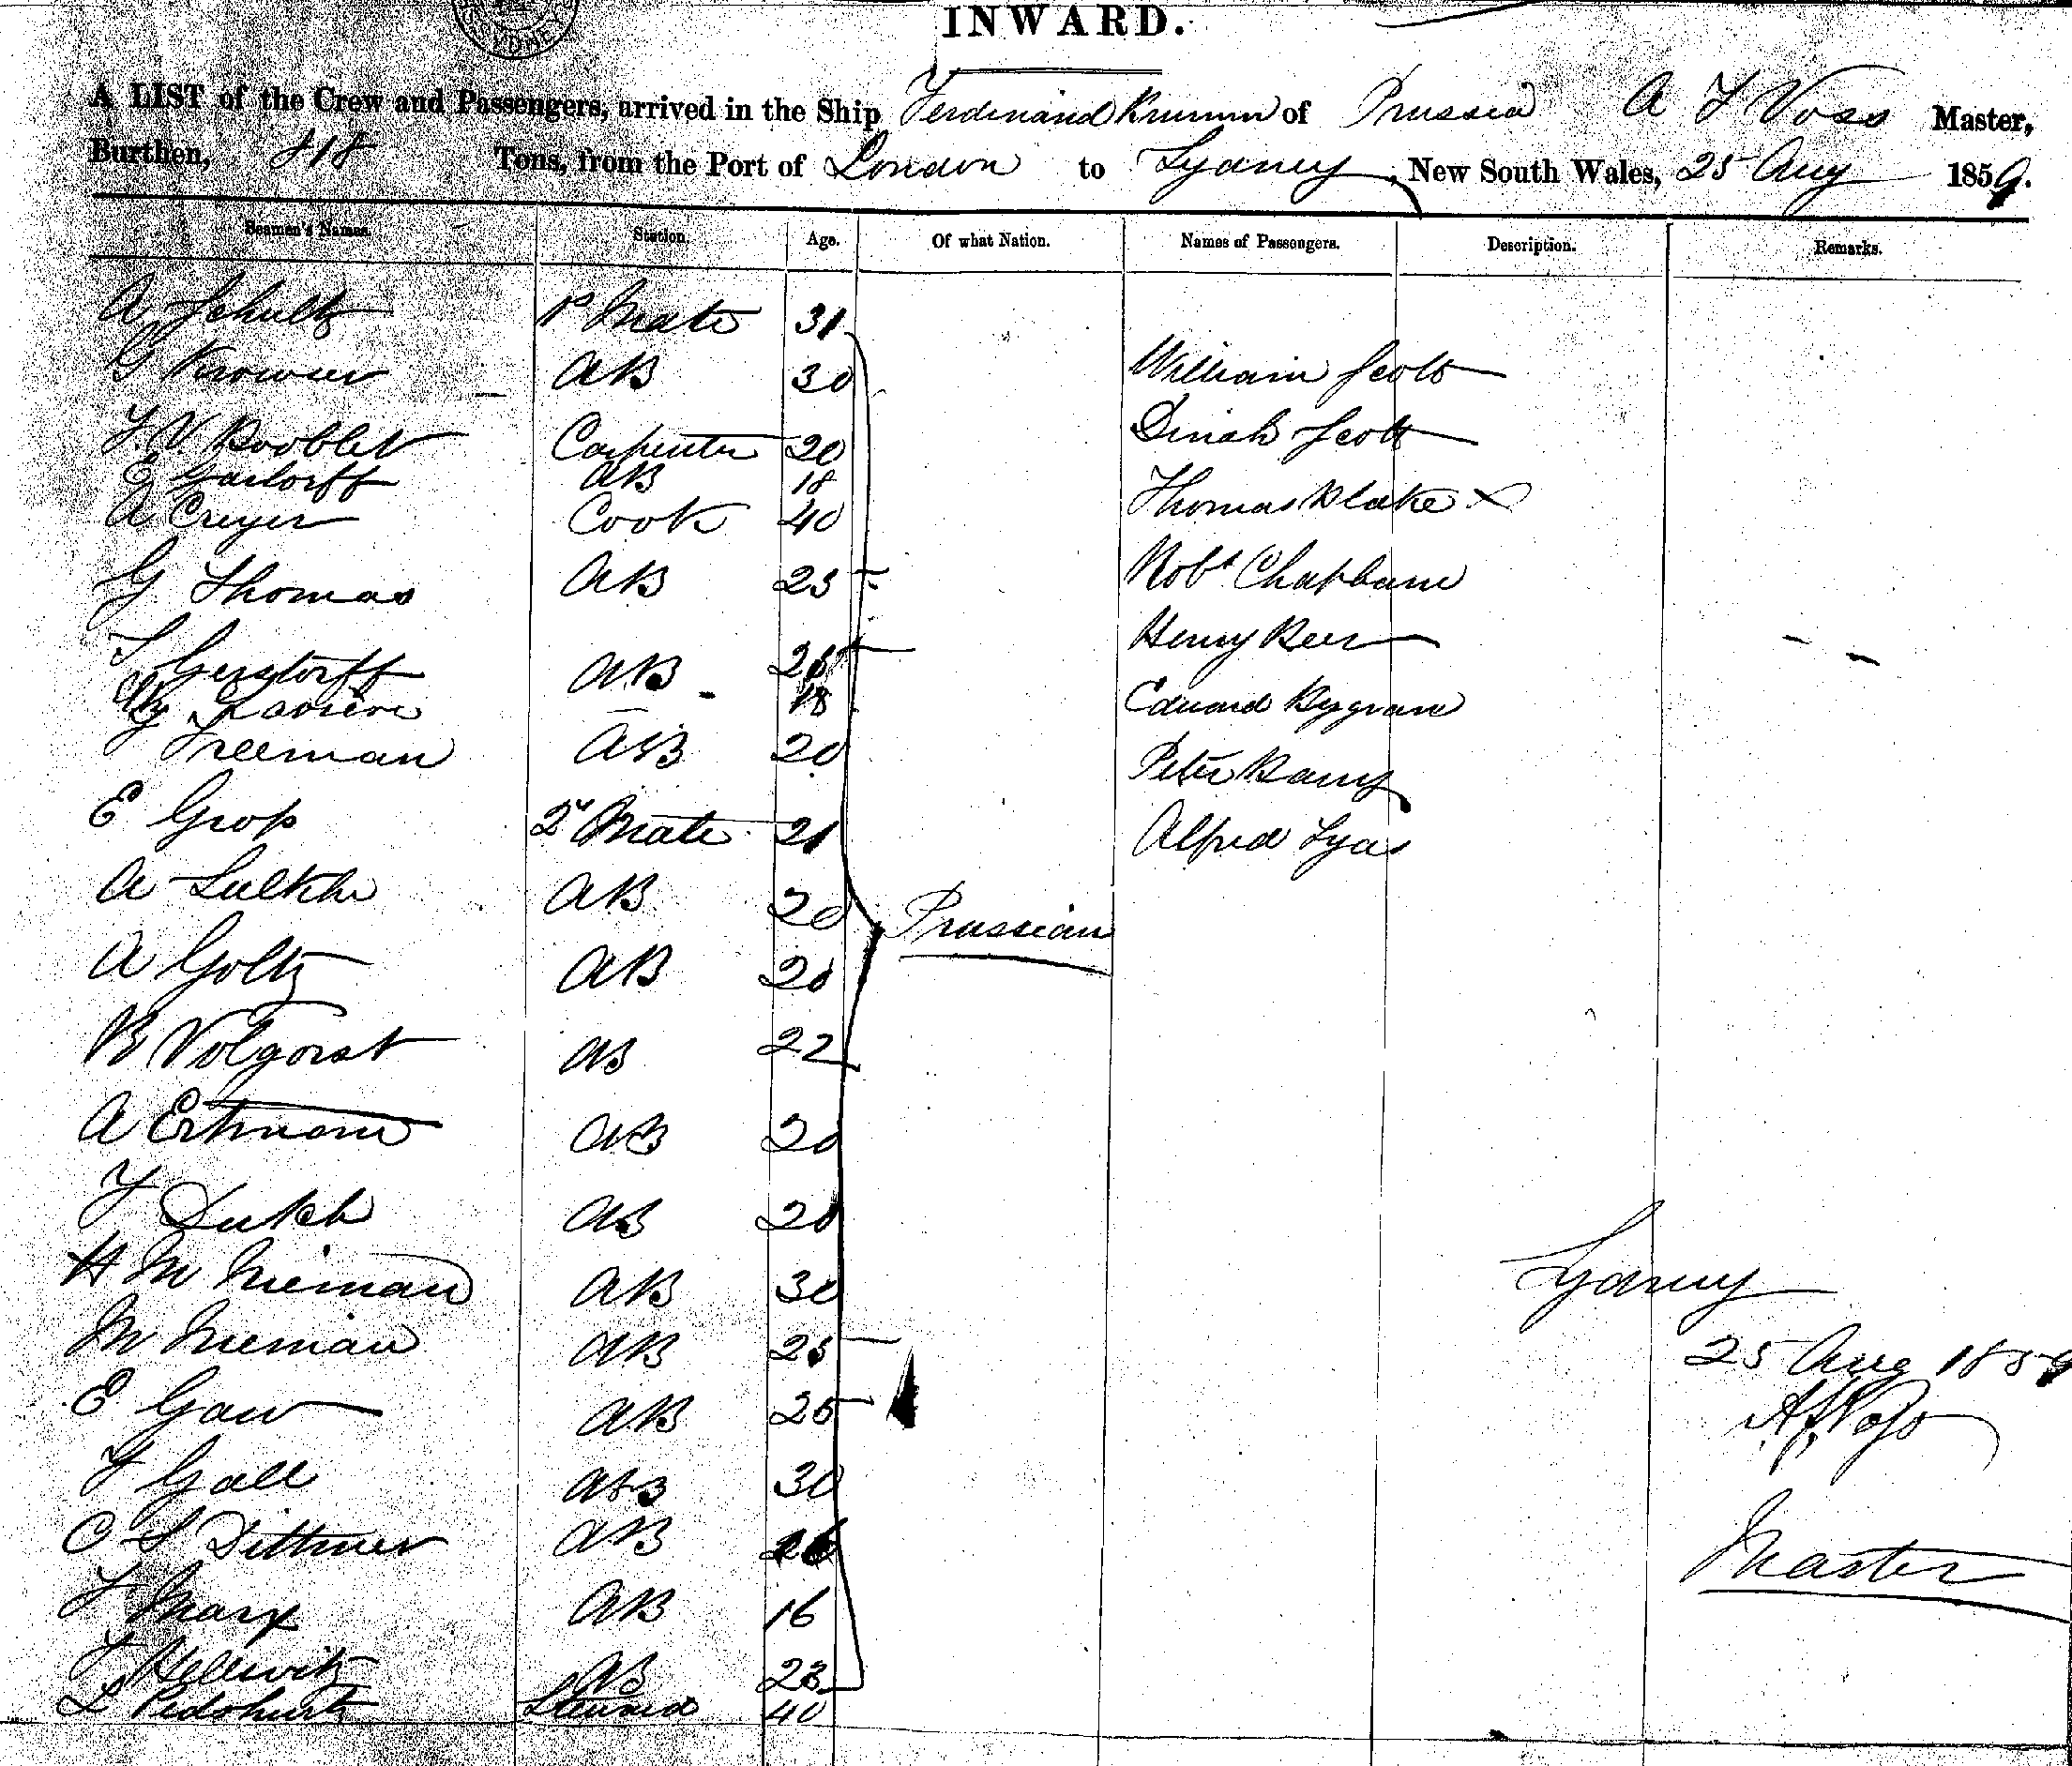 INWARD.
A LIST of the Crew and Passengers, arrived in the Ship Ferdinand Krumm of Prussia A F Voss Master,
Burthen, 818 Tons, from the Port of London to Sydney, New South Wales, 25 Aug 1859.
Seamen's Names. Station. Age. Of what Nation. Names of Passengers. Description. Remarks.
A Schultz 1st Mate 31
G AB 30 William Scott
Carpenter 20 Dinah Scott
AB 18
A Creyer Cook 40 Thomas Blake x
G Thomas AB 25 Robt Chapham
Gerstorff AB Henry Beer
18 Edward
Freeman AB 20 Peter
E Gross 2d Mate 21 Alfred Lyas
A AB 20
Prussian
A Goltz AB 20
Volgorst AB 22
A Ertmann AB 20
AB 20
H M Nieman AB 30
Sydney
M Nieman AB 25
25 Aug 1859
E Gaw AB 25
A F Voss
F Gall AB 30
C S Dittmer AB
Master
F Marx AB 16
F Hellwitz AB 23
L Steward 40